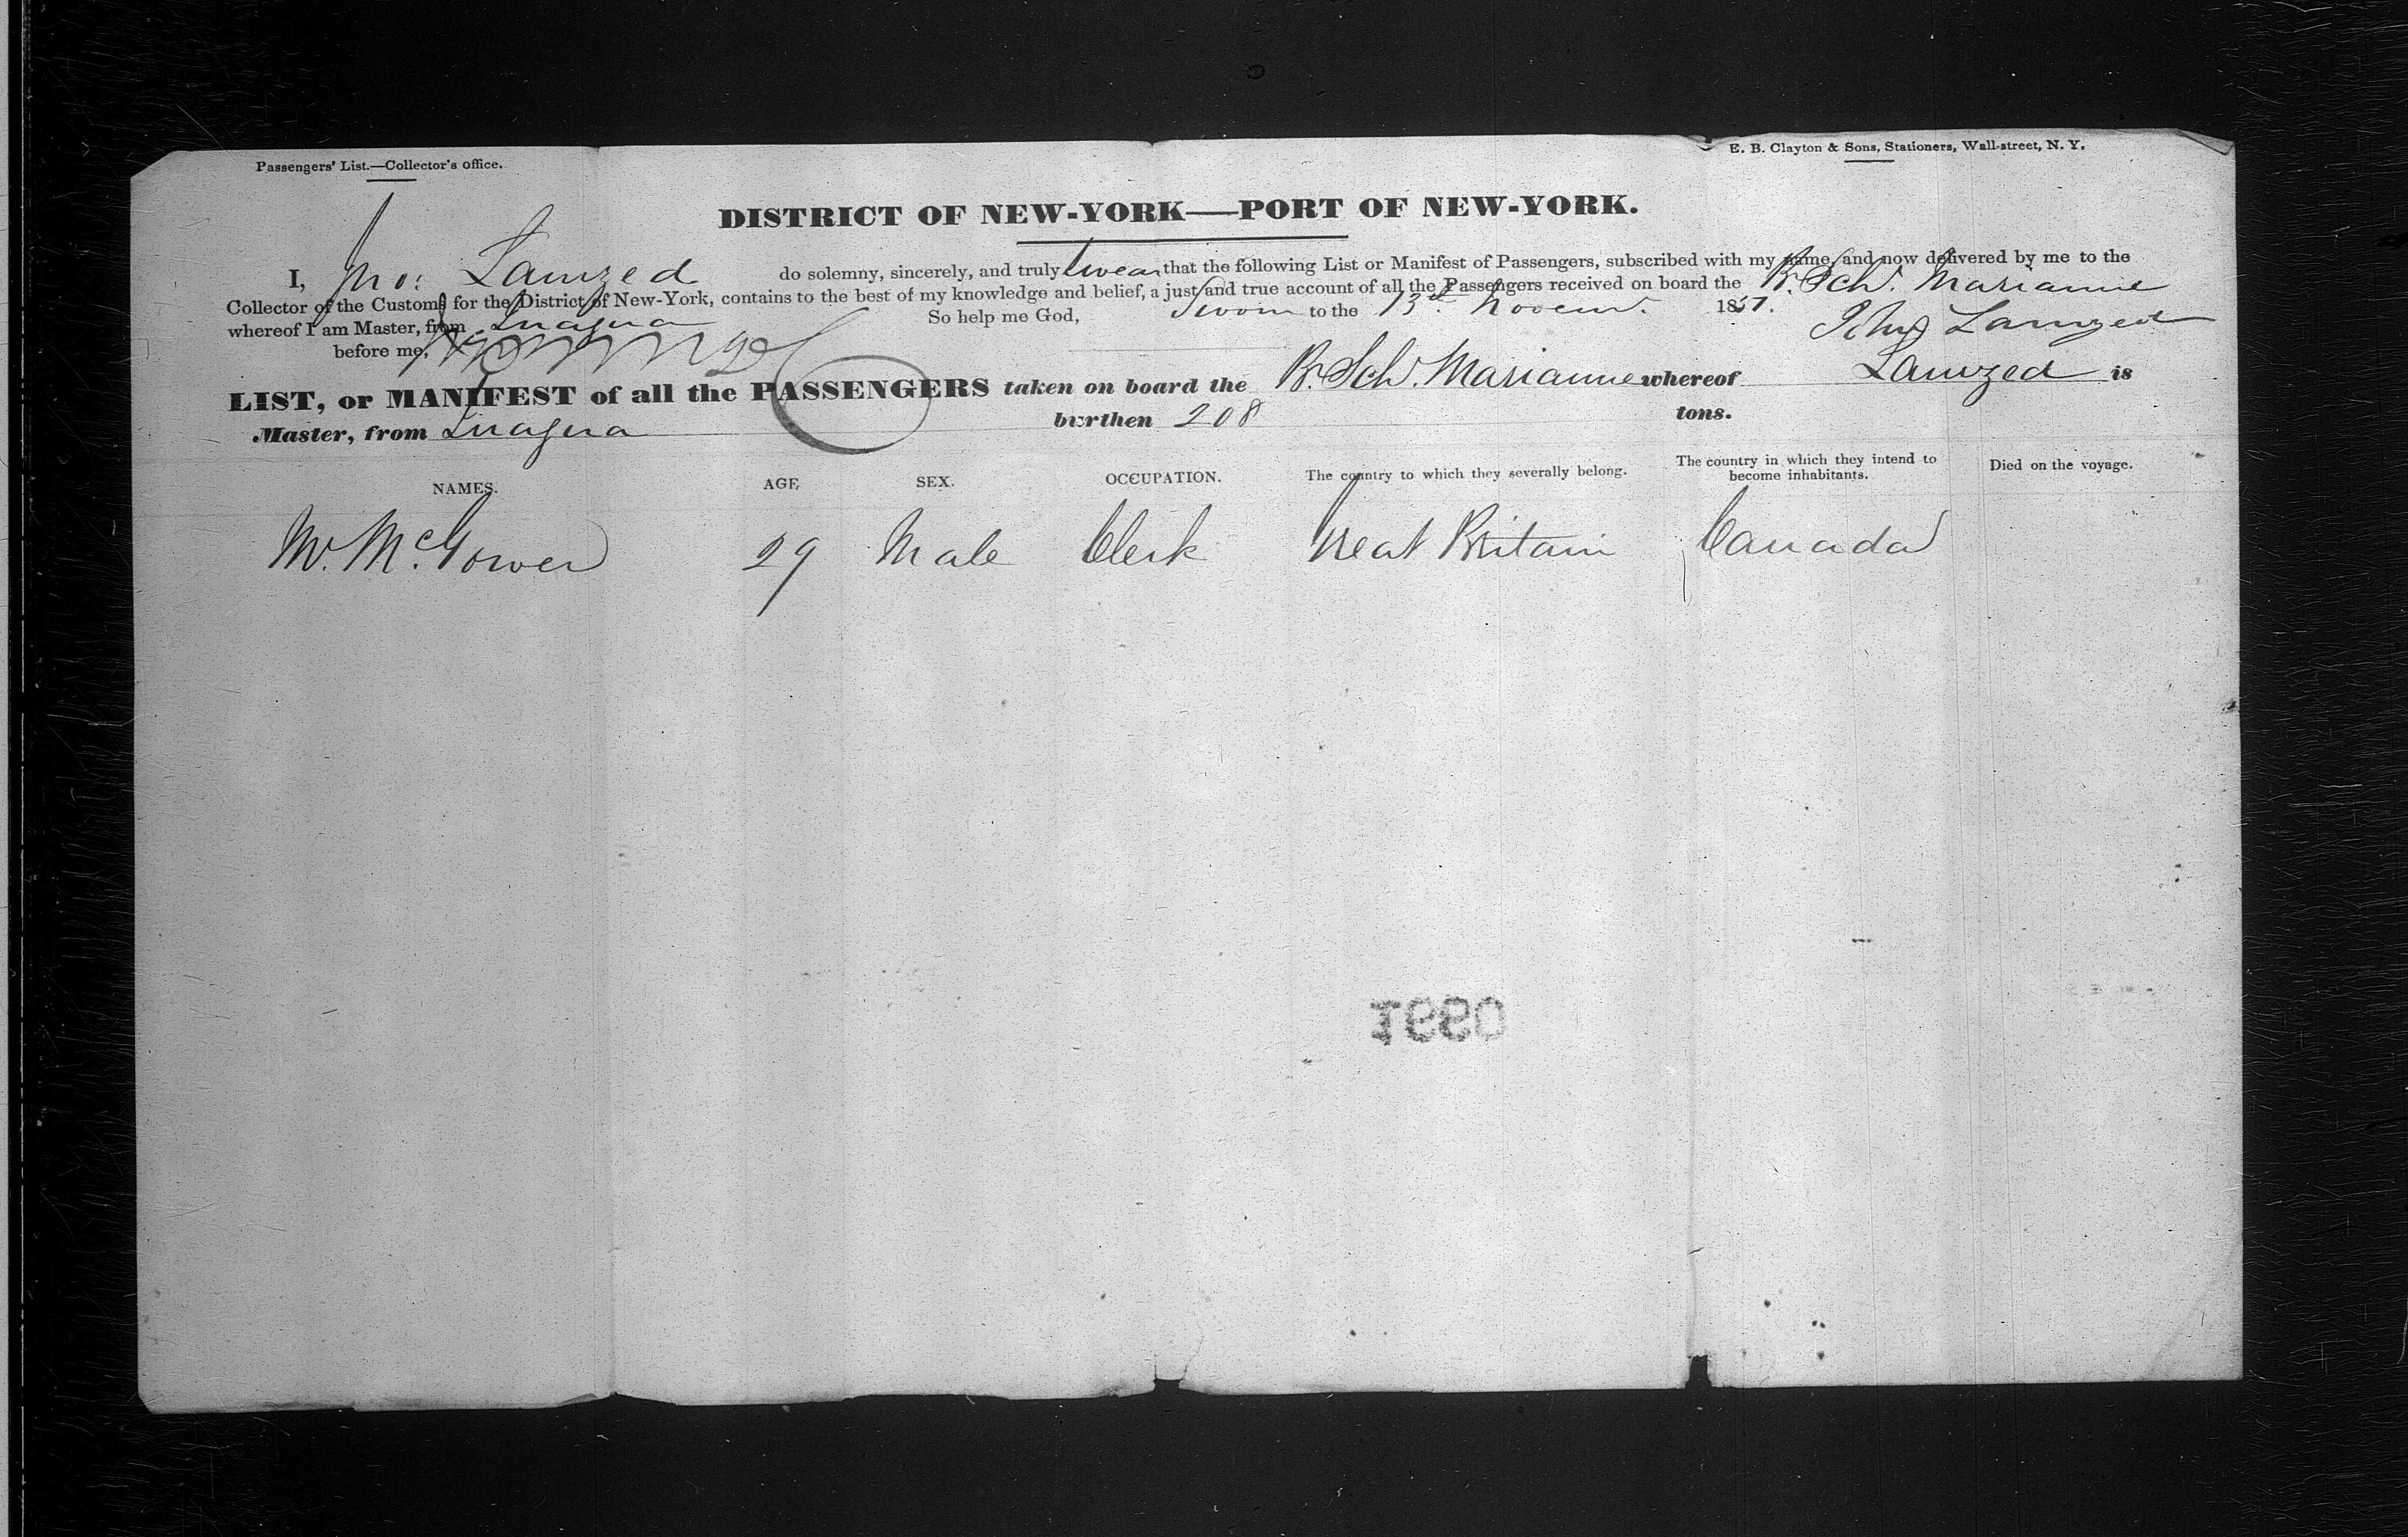 Passengers' List.—Collector's office.
E. B. Clayton & Sons, Stationers, Wall-street, N. Y.
DISTRICT OF NEW-YORK—PORT OF NEW-YORK.
I, Jno: Lamzed do solemny, sincerely, and truly swear that the following List or Manifest of Passengers, subscribed with my name, and now delivered by me to the
Collector of the Customs for the District of New-York, contains to the best of my knowledge and belief, a just and true account of all the Passengers received on board the Br. Sch. Marianne
whereof I am Master, from Inagua So help me God, Sworn to the 13th Novem. 1857.
before me, John Lamzed
LIST, or MANIFEST of all the PASSENGERS taken on board the Br. Sch. Marianne whereof Lamzed is
Master, from Inagua burthen 208 tons.
NAMES. AGE SEX. OCCUPATION. The country to which they severally belong. The country in which they intend to become inhabitants. Died on the voyage.
W. McGower 29 Male Clerk Great Britain Canada